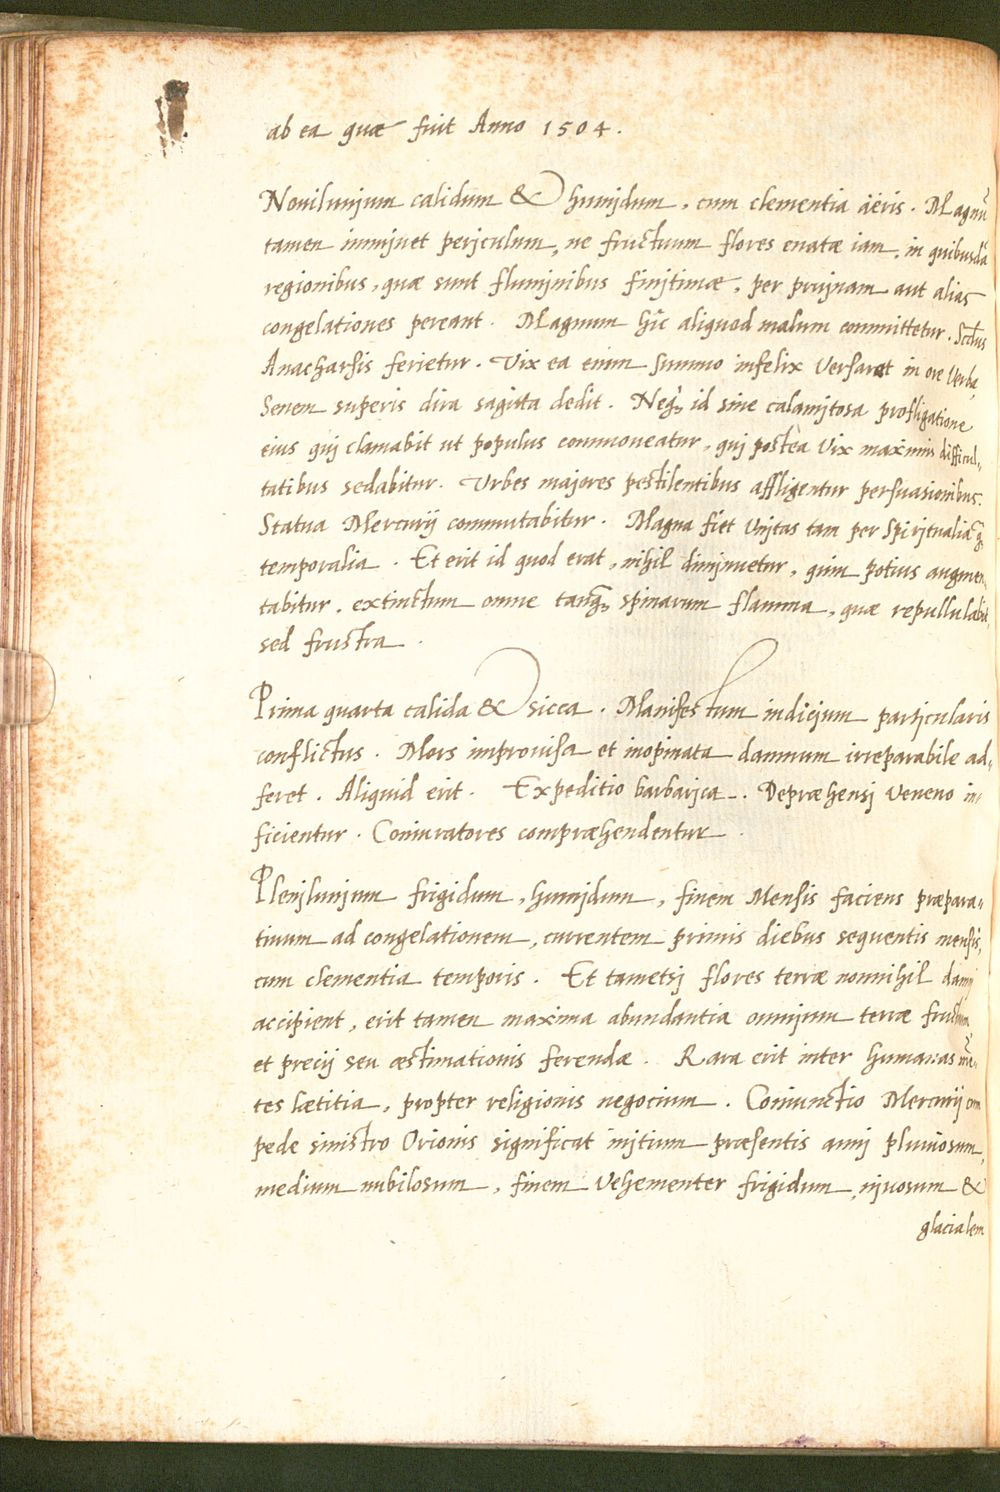 ab ea quæ fuit Anno 1504.
Nouilunium calidum & humjdum, cum clementia aëris. Magnū
tamen imminet periculum, ne fructuum flores enatæ iam, in quibusdā
regionibus, quæ sunt fluminibus finitimæ, per pruinam aut alias
congelationes pereant. Magnum hic aliquod malum committetur.
Anacharsis ferietur. Vix ea enim summo infelix Versarat in ore Verba,
Senem superis dira sagitta dedit. Neq; id sine calamitosa profligatione
eius qui clamabit ut populus commoueatur, qui postea Vix maximis difficul-
tatibus sedabitur. Vrbes majores pestilentibus affligentur persuasionibus.
Statua Mercurij commutabitur. Magna fiet Vnitas tam per Spiritualia q̃
temporalia. Et erit id quod erat, nihil diminuetur, quin potius augmen-
tabitur, extinctum omne tanq̃ spinarum flamma, quæ repullulabit,
sed frustra.
Prima quarta calida & sicca. Manifestum indicium particularis
conflictus. Mors improuisa et inopinata damnum irreparabile ad-
feret. Aliquid erit. Expeditio barbarica. Depræhensi Veneno in-
ficientur. Coniuratores compræhendentur.
Plenilunium frigidum, humidum, finem Mensis faciens præpara-
tiuum ad congelationem, currentem primis diebus sequentis mensis,
cum clementia temporis. Et tametsi flores terræ nonnihil damni
accipient, erit tamen maxima abundantia omnium terræ fructuum,
et precij seu æstimationis ferendæ. Rara erit inter humanas mē-
tes lætitia, propter religionis negocium. Coniunctio Mercurij cum
pede sinistro Orionis significat initium præsentis anni pluuiosum,
medium nubilosum, finem Vehementer frigidum, niuosum &
glacialem